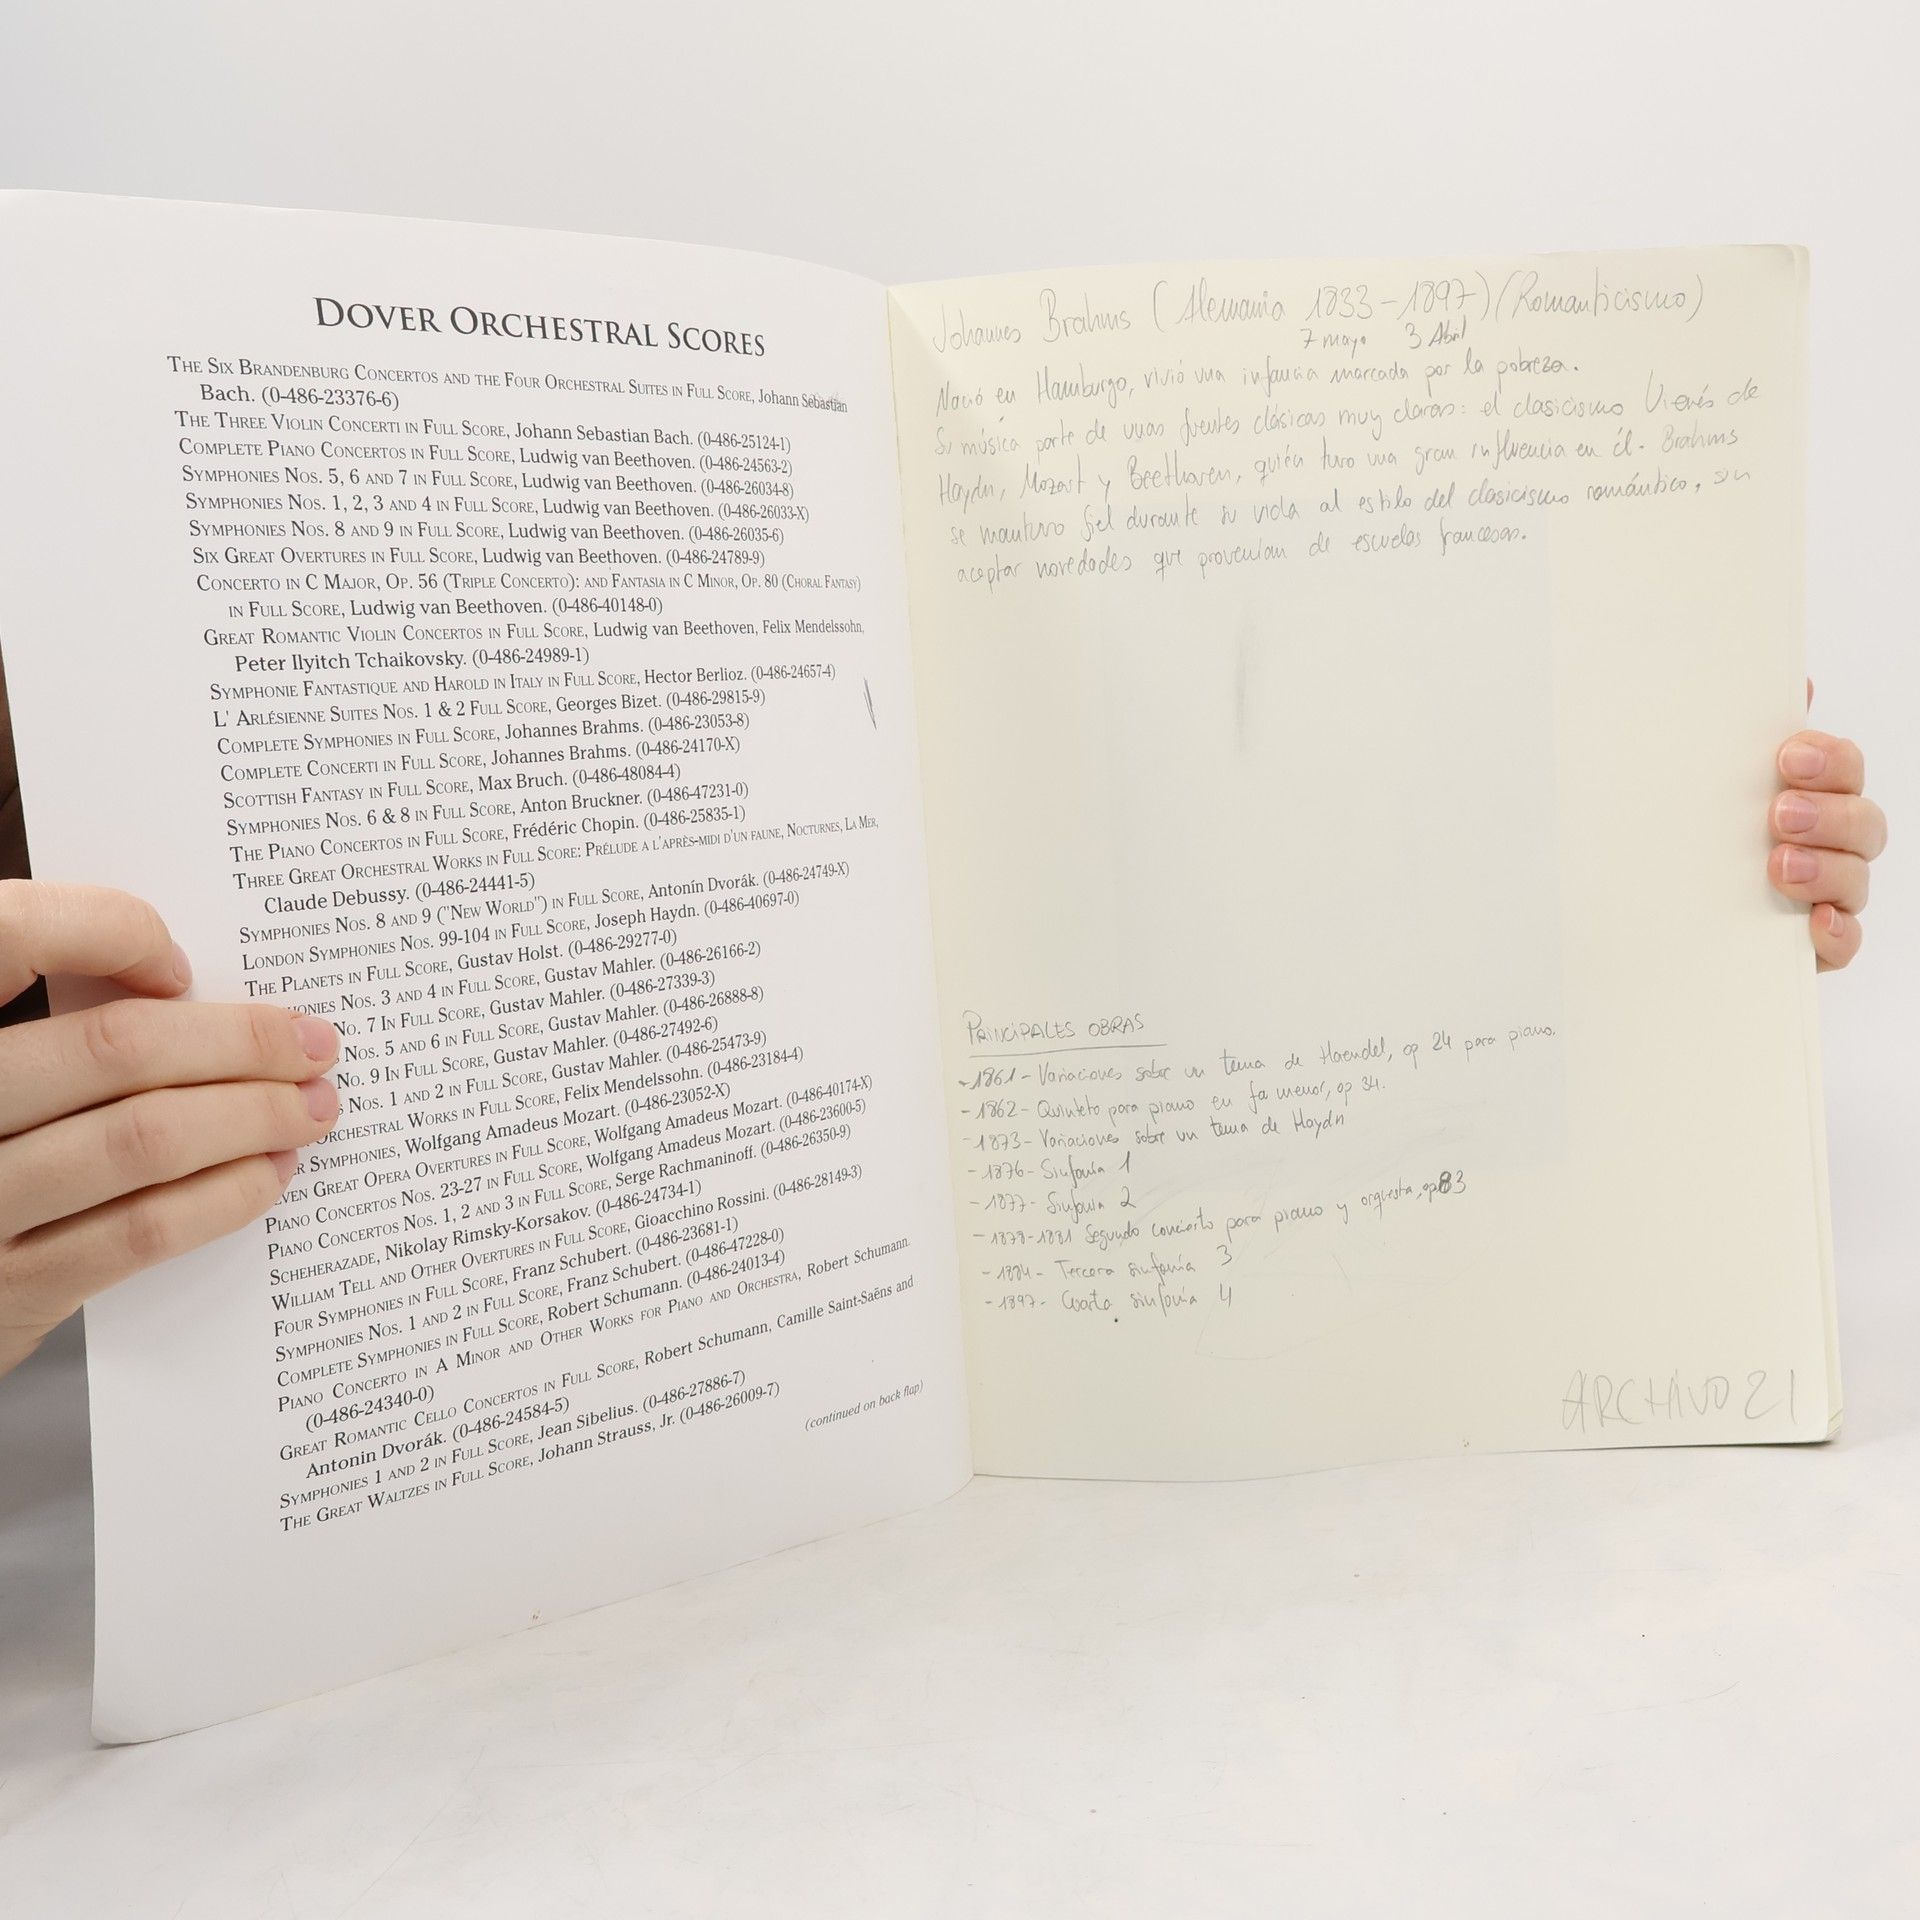 DOVER ORCHESTRAL SCORES
THE SIX BRANDENBURG CONCERTOS AND THE FOUR ORCHESTRAL SUITES IN FULL SCORE, Johann Sebastian
Bach. (0-486-23376-6)
THE THREE VIOLIN CONCERTI IN FULL SCORE, Johann Sebastian Bach. (0-486-25124-1)
COMPLETE PIANO CONCERTOS IN FULL SCORE, Ludwig van Beethoven. (0-486-24563-2)
SYMPHONIES NOS. 5, 6 AND 7 IN FULL SCORE, Ludwig van Beethoven. (0-486-26034-8)
SYMPHONIES NOS. 1, 2, 3 AND 4 IN FULL SCORE, Ludwig van Beethoven. (0-486-26033-X)
SYMPHONIES NOS. 8 AND 9 IN FULL SCORE, Ludwig van Beethoven. (0-486-26035-6)
SIX GREAT OVERTURES IN FULL SCORE, Ludwig van Beethoven. (0-486-24789-9)
CONCERTO IN C MAJOR, OP. 56 (TRIPLE CONCERTO): AND FANTASIA IN C MINOR, OP. 80 (CHORAL FANTASY)
IN FULL SCORE, Ludwig van Beethoven. (0-486-40148-0)
GREAT ROMANTIC VIOLIN CONCERTOS IN FULL SCORE, Ludwig van Beethoven, Felix Mendelssohn,
Peter Ilyitch Tchaikovsky. (0-486-24989-1)
SYMPHONIE FANTASTIQUE AND HAROLD IN ITALY IN FULL SCORE, Hector Berlioz. (0-486-24657-4)
L' ARLÉSIENNE SUITES NOS. 1 & 2 FULL SCORE, Georges Bizet. (0-486-29815-9)
COMPLETE SYMPHONIES IN FULL SCORE, Johannes Brahms. (0-486-23053-8)
COMPLETE CONCERTI IN FULL SCORE, Johannes Brahms. (0-486-24170-X)
SCOTTISH FANTASY IN FULL SCORE, Max Bruch. (0-486-48084-4)
SYMPHONIES NOS. 6 & 8 IN FULL SCORE, Anton Bruckner. (0-486-47231-0)
THE PIANO CONCERTOS IN FULL SCORE, Frédéric Chopin. (0-486-25835-1)
THREE GREAT ORCHESTRAL WORKS IN FULL SCORE: PRÉLUDE A L'APRÈS-MIDI D'UN FAUNE, NOCTURNES, LA MER,
Claude Debussy. (0-486-24441-5)
SYMPHONIES NOS. 8 AND 9 ("NEW WORLD") IN FULL SCORE, Antonín Dvorák. (0-486-24749-X)
LONDON SYMPHONIES NOS. 99-104 IN FULL SCORE, Joseph Haydn. (0-486-40697-0)
THE PLANETS IN FULL SCORE, Gustav Holst. (0-486-29277-0)
NOS. 3 AND 4 IN FULL SCORE, Gustav Mahler. (0-486-26166-2)
NO. 7 IN FULL SCORE, Gustav Mahler. (0-486-27339-3)
NOS. 5 AND 6 IN FULL SCORE, Gustav Mahler. (0-486-26888-8)
NO. 9 IN FULL SCORE, Gustav Mahler. (0-486-27492-6)
NOS. 1 AND 2 IN FULL SCORE, Gustav Mahler. (0-486-25473-9)
ORCHESTRAL WORKS IN FULL SCORE, Felix Mendelssohn. (0-486-23184-4)
SYMPHONIES, Wolfgang Amadeus Mozart. (0-486-23052-X)
GREAT OPERA OVERTURES IN FULL SCORE, Wolfgang Amadeus Mozart. (0-486-40174-X)
PIANO CONCERTOS NOS. 23-27 IN FULL SCORE, Wolfgang Amadeus Mozart. (0-486-23600-5)
PIANO CONCERTOS NOS. 1, 2 AND 3 IN FULL SCORE, Serge Rachmaninoff. (0-486-26350-9)
SCHEHERAZADE, Nikolay Rimsky-Korsakov. (0-486-24734-1)
WILLIAM TELL AND OTHER OVERTURES IN FULL SCORE, Gioacchino Rossini. (0-486-28149-3)
FOUR SYMPHONIES IN FULL SCORE, Franz Schubert. (0-486-23681-1)
SYMPHONIES NOS. 1 AND 2 IN FULL SCORE, Franz Schubert. (0-486-47228-0)
COMPLETE SYMPHONIES IN FULL SCORE, Robert Schumann. (0-486-24013-4)
PIANO CONCERTO IN A MINOR AND OTHER WORKS FOR PIANO AND ORCHESTRA, Robert Schumann.
(0-486-24340-0)
GREAT ROMANTIC CELLO CONCERTOS IN FULL SCORE, Robert Schumann, Camille Saint-Saëns and
Antonin Dvorák. (0-486-24584-5)
SYMPHONIES 1 AND 2 IN FULL SCORE, Jean Sibelius. (0-486-27886-7)
THE GREAT WALTZES IN FULL SCORE, Johann Strauss, Jr. (0-486-26009-7)
(continued on back flap)
Johannes Brahms (Alemania 1833-1897) (Romanticismo)
7 mayo 3 Abril
Nació en Hamburgo, vivió una infancia marcada por la pobreza.
Su música parte de unas fuentes clásicas muy claras: el clasicismo Vienés de
Haydn, Mozart y Beethoven, quién tuvo una gran influencia en él. Brahms
se mantuvo fiel durante su vida al estilo del clasicismo romántico, sin
aceptar novedades que provenían de escuelas francesas.
PRINCIPALES OBRAS
-1861- Variaciones sobre un tema de Haendel, op 24 para piano.
-1862- Quinteto para piano en fa menor, op 34.
-1873- Variaciones sobre un tema de Haydn
-1876- Sinfonía 1
-1877- Sinfonía 2
-1878-1881 Segundo concierto para piano y orquesta, op 83
-1884- Tercera sinfonía 3
-1897- Cuarta sinfonía 4
ARCHIVO 21